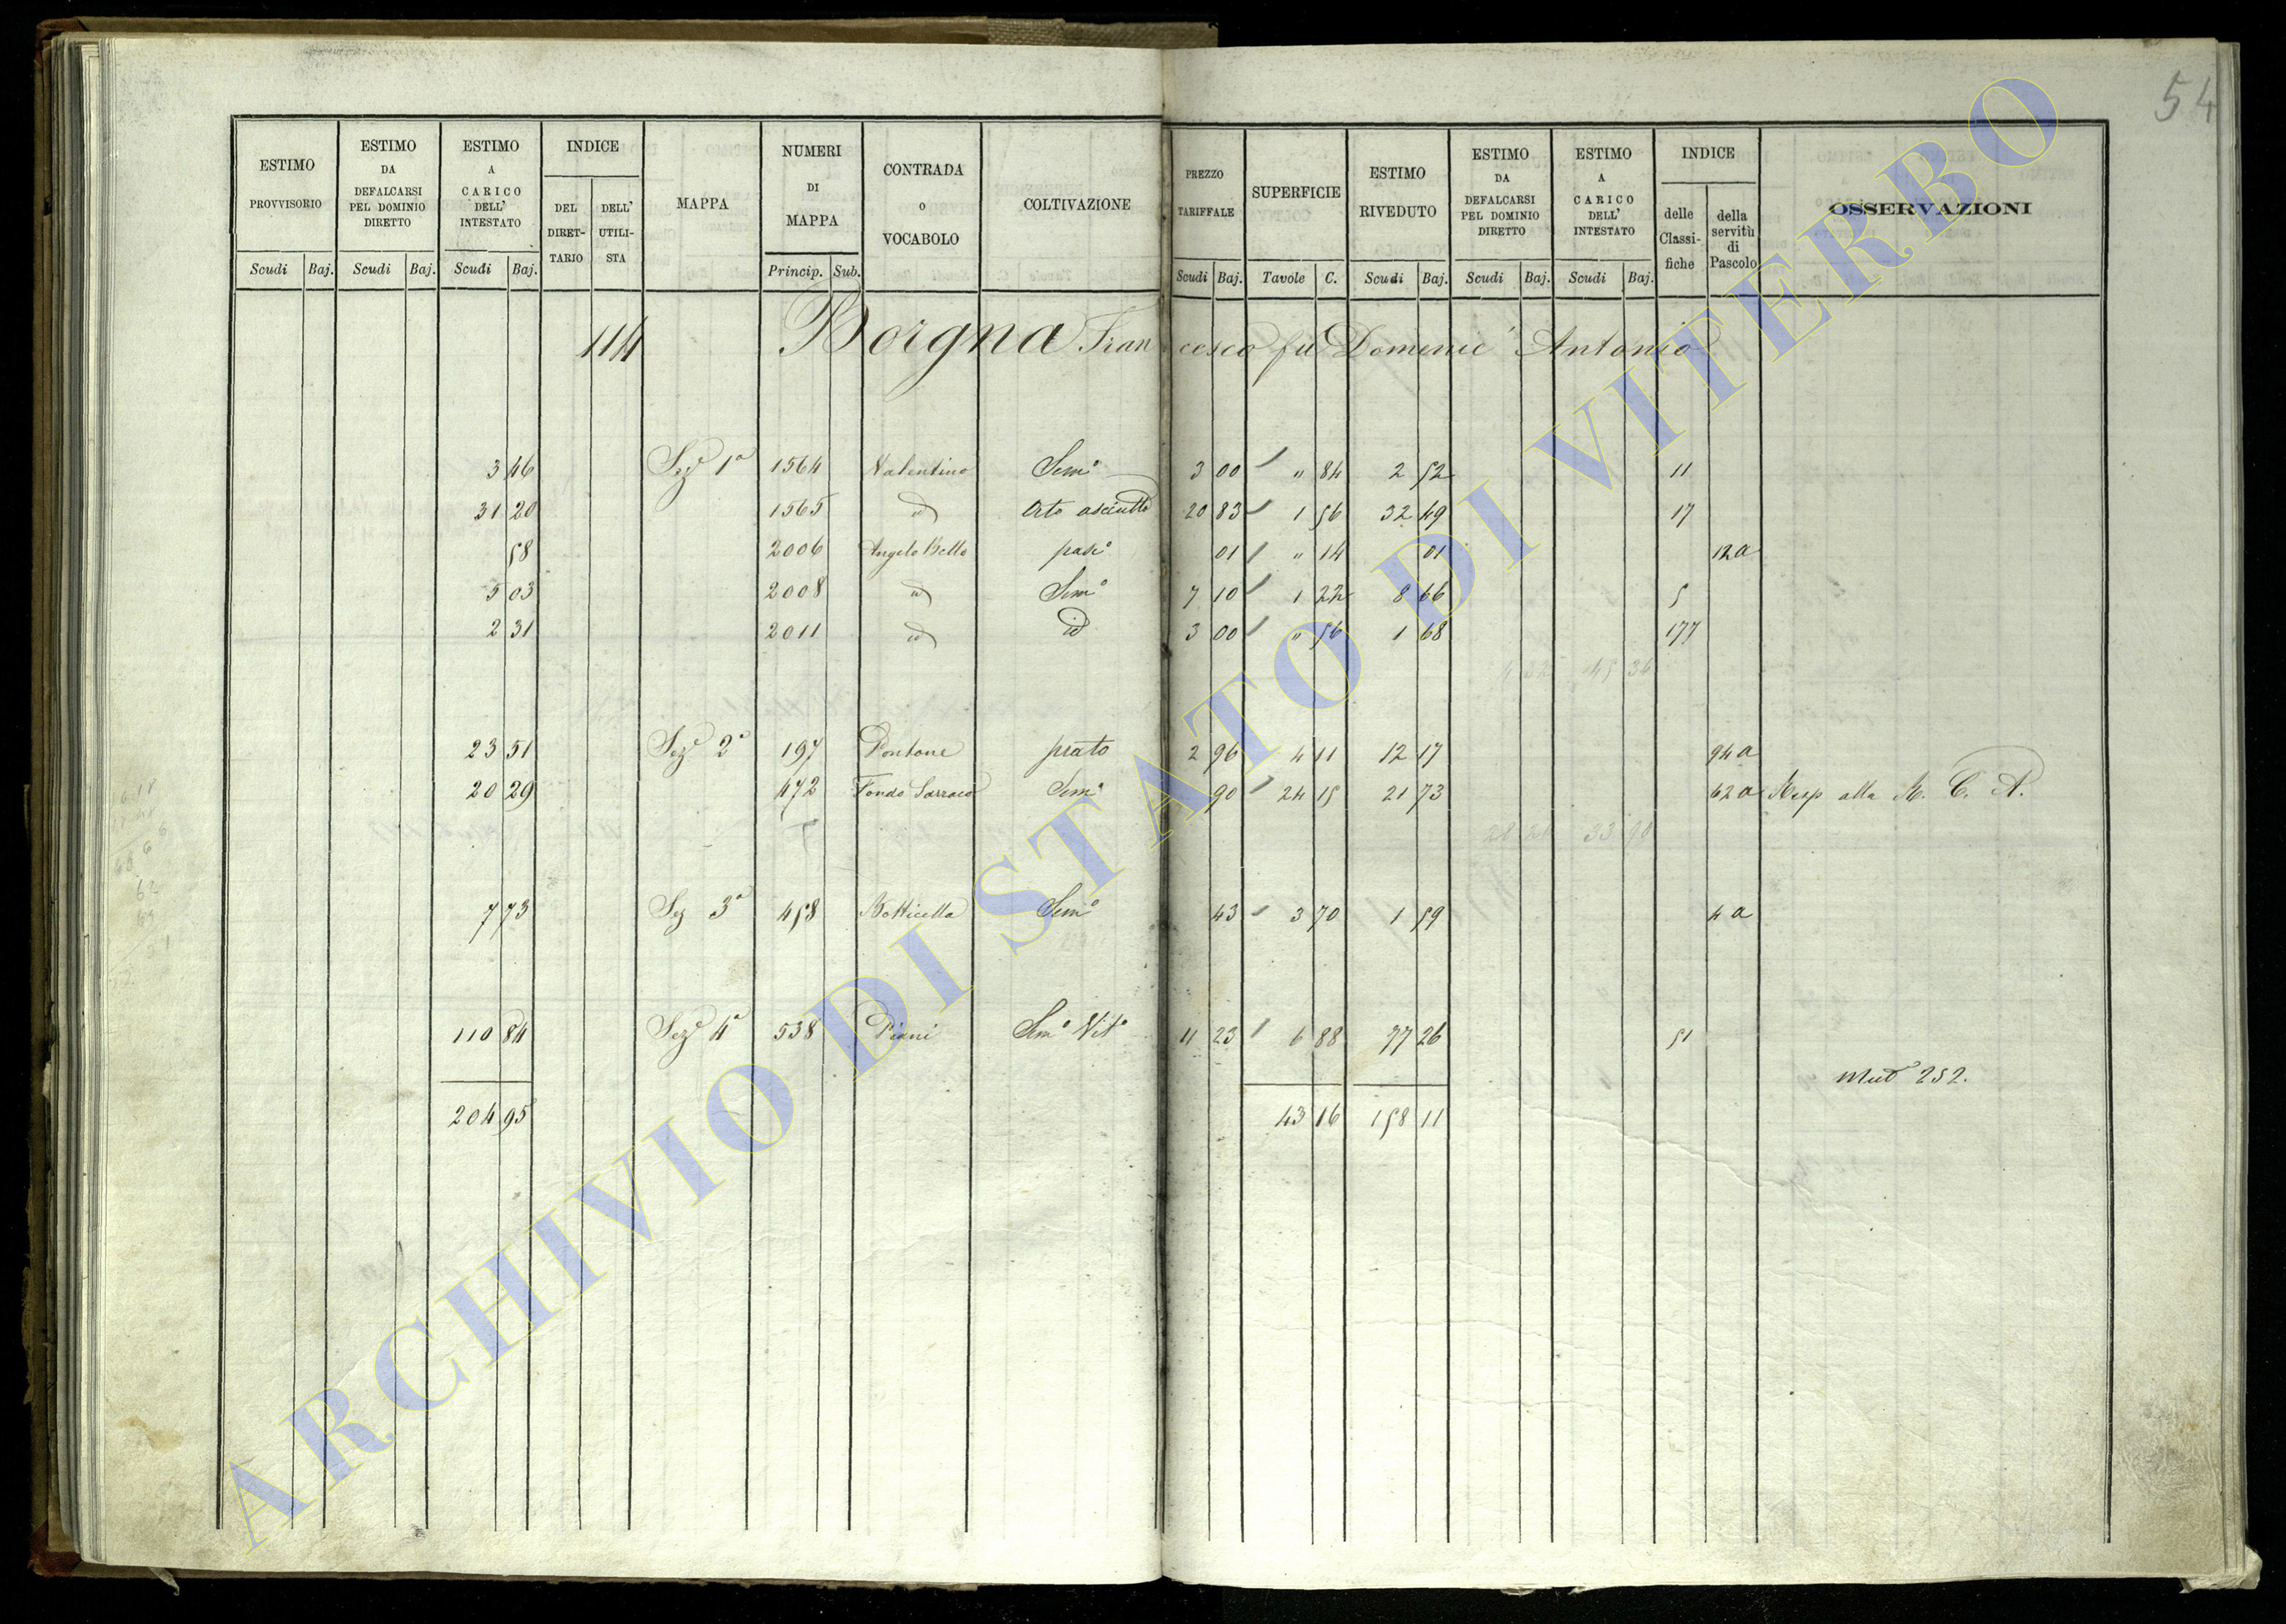 54
ESTIMO PROVVISORIO | ESTIMO DA DEFALCARSI PEL DOMINIO DIRETTO | ESTIMO A CARICO DELL' INTESTATO | INDICE | MAPPA | NUMERI DI MAPPA | CONTRADA O VOCABOLO | COLTIVAZIONE | PREZZO TARIFFALE | SUPERFICIE | ESTIMO RIVEDUTO | ESTIMO DA DEFALCARSI PEL DOMINIO DIRETTO | ESTIMO A CARICO DELL' INTESTATO | INDICE | OSSERVAZIONI
DEL DIRET-TARIO | DELL' UTILI-STA | delle Classi-fiche | della servitù di Pascolo
Scudi | Baj. | Scudi | Baj. | Scudi | Baj. | Princip. | Sub. | Scudi | Baj. | Tavole | C. | Scudi | Baj. | Scudi | Baj. | Scudi | Baj.
114 Borgna Francesco fu Domenic' Antonio
3 46 | Sezᵉ 1ª | 1564 | Valentino | Semº | 3 00 | " 84 | 2 52 | 11
31 20 | 1565 | id | Orto asciutto | 20 83 | 1 56 | 32 49 | 17
58 | 2006 | Angelo Bello | pascº | 01 | " 14 | 01 | 12a
5 03 | 2008 | id | Semº | 7 10 | 1 22 | 8 66 | 5
2 31 | 2011 | id | id | 3 00 | " 56 | 1 68 | 177
45 36
23 51 | Sezᵉ 2ª | 197 | Pontone | prato | 2 96 | 4 11 | 12 17 | 94a
20 29 | 472 | Fondo | Semº | 90 | 24 15 | 21 73 | 62a | Resp alla R. C. A.
33 90
7 73 | Sez 3ª | 458 | Botticella | Semº | 43 | 3 70 | 1 59 | 4a
110 84 | Sezᵉ 4ª | 538 | Piani | Semº Vitº | 11 23 | 6 88 | 77 26 | 51
252.
204 95 | 43 16 | 158 11
ARCHIVIO DI STATO DI VITERBO